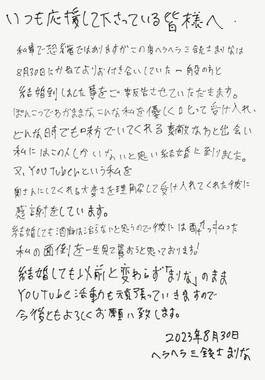 いつも応援して下さっている皆様へ
私事で恐縮ではありますがこの度ヘラヘラ三銃士まりなは
8月30日にかねてよりお付き合いしていた一般の方と
結婚致しました事をご報告させていただきます。
ぽんこつでわがままなこんな私を優しく 受け入れ、
どんな時でも味方でいてくれる素敵な方と出会い
私にはこの人しかいないと思い結婚に至りました。
又、YouTuberという私を
奥さんにしてくれる大変さを理解して受け入れてくれた彼に
感謝をしています。
結婚してもお酒癖は治らないと思うので彼には酔っ払った
私の面倒を一生見て貰おうと思っております!
結婚しても以前と変わらず「まりな」のまま
YouTube活動も頑張っていきますので
今後ともよろしくお願い致します。
2023年8月30日
ヘラヘラ三銃士まりな